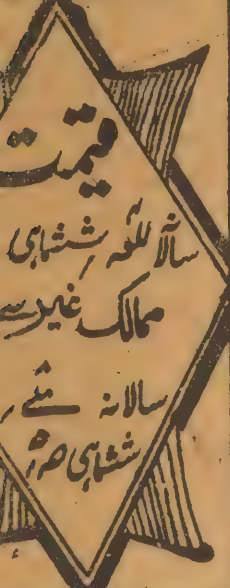 قیمت
سالانہ للعہ ششماہی
ممالک غیر سے
سالانہ
ششماہی